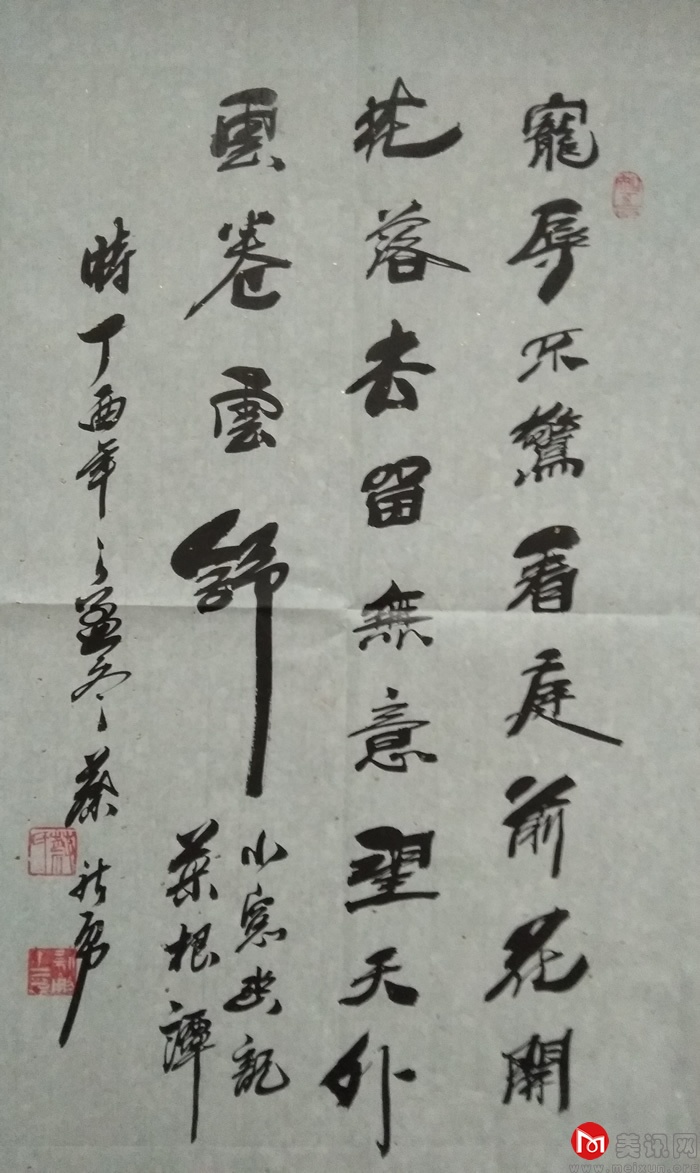 寵辱不驚看庭前花開
花落去留無意望天外
雲卷雲舒
小窓幽記
菜根譚
時丁酉年之孟冬蔡
美讯网
www.meixun.c